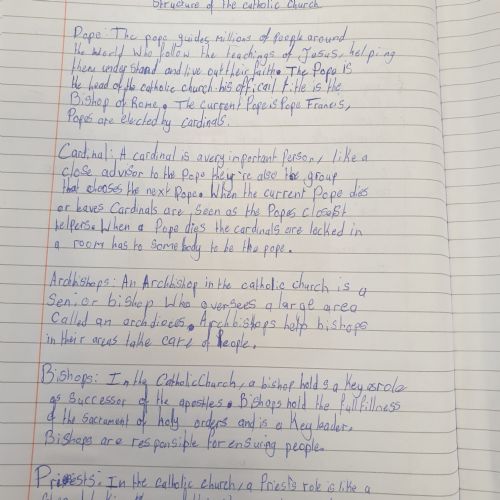 Structure of the Catholic Church
Pope: The pope guides millions of people around
the world who follow the teachings of Jusus, helping
them understand and live out their faith. The Pope is
the head of the catholic church his officail title is the
Bishop of Rome. The current Pope is Pope Francis,
Popes are elected by cardinals.
Cardinal: A cardinal is a very important person, like a
close advisor to the Pope they're also the group
that chooses the next Pope. When the current Pope dies
or leaves Cardinals are seen as the Popes closest
helpers. When a Pope dies the cardinals are locked in
a room has to somebody to be the pope.
Archbishops: An Archbishop in the catholic church is a
senior bishop who oversees a large area
called an archdioces. Archbishops help bishops
in their areas take care of people.
Bishops: In the Catholic Church, a bishop holds a key role
as successor of the apostles. Bishops hold the fullfillness
of the sacrament of holy orders and is a key leader.
Bishops are responsible for ensuring people.
Priests: In the catholic church, a Priests role is like a